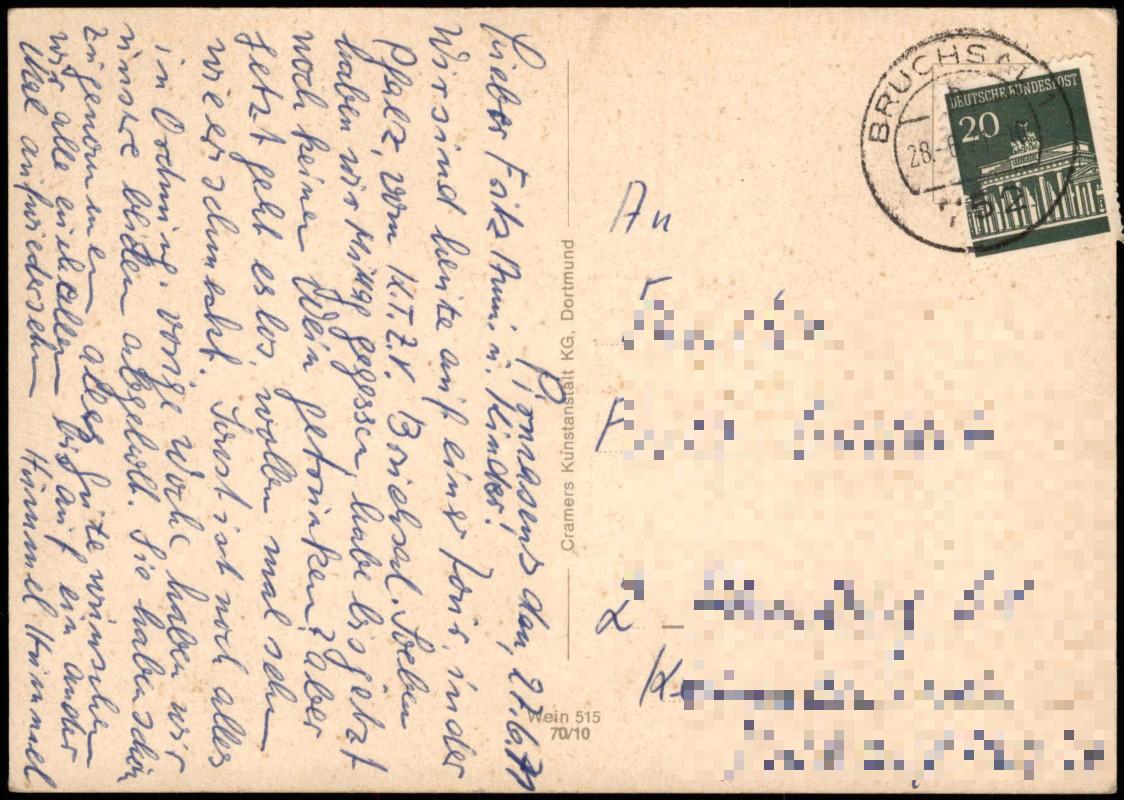 Pirmasens den, 27.6.71
Lieber Fritz Anni u. Kinder!
Wir sind heute auf einer Tour, in der
Pfalz, vom K.T.Z.V. Bruchsal. Soeben
haben wir Mittag gegessen, habe bis jetzt
noch keinen Wein getrunken? aber
Jetzt geht es los, wollen mal sehn
wie er schmeckt. Sonst ist noch alles
in Ordnung. vorige Woche haben wir
unsere beiden abgeholt. Sie haben schön
zugenommen alles gute wünschen
wir alle euch allen bis auf ein ander
Mal aufwiedersehn
Cramers Kunstanstalt KG, Dortmund
Wein 515
70/10
BRUCHSAL
DEUTSCHE BUNDESPOST
20
An